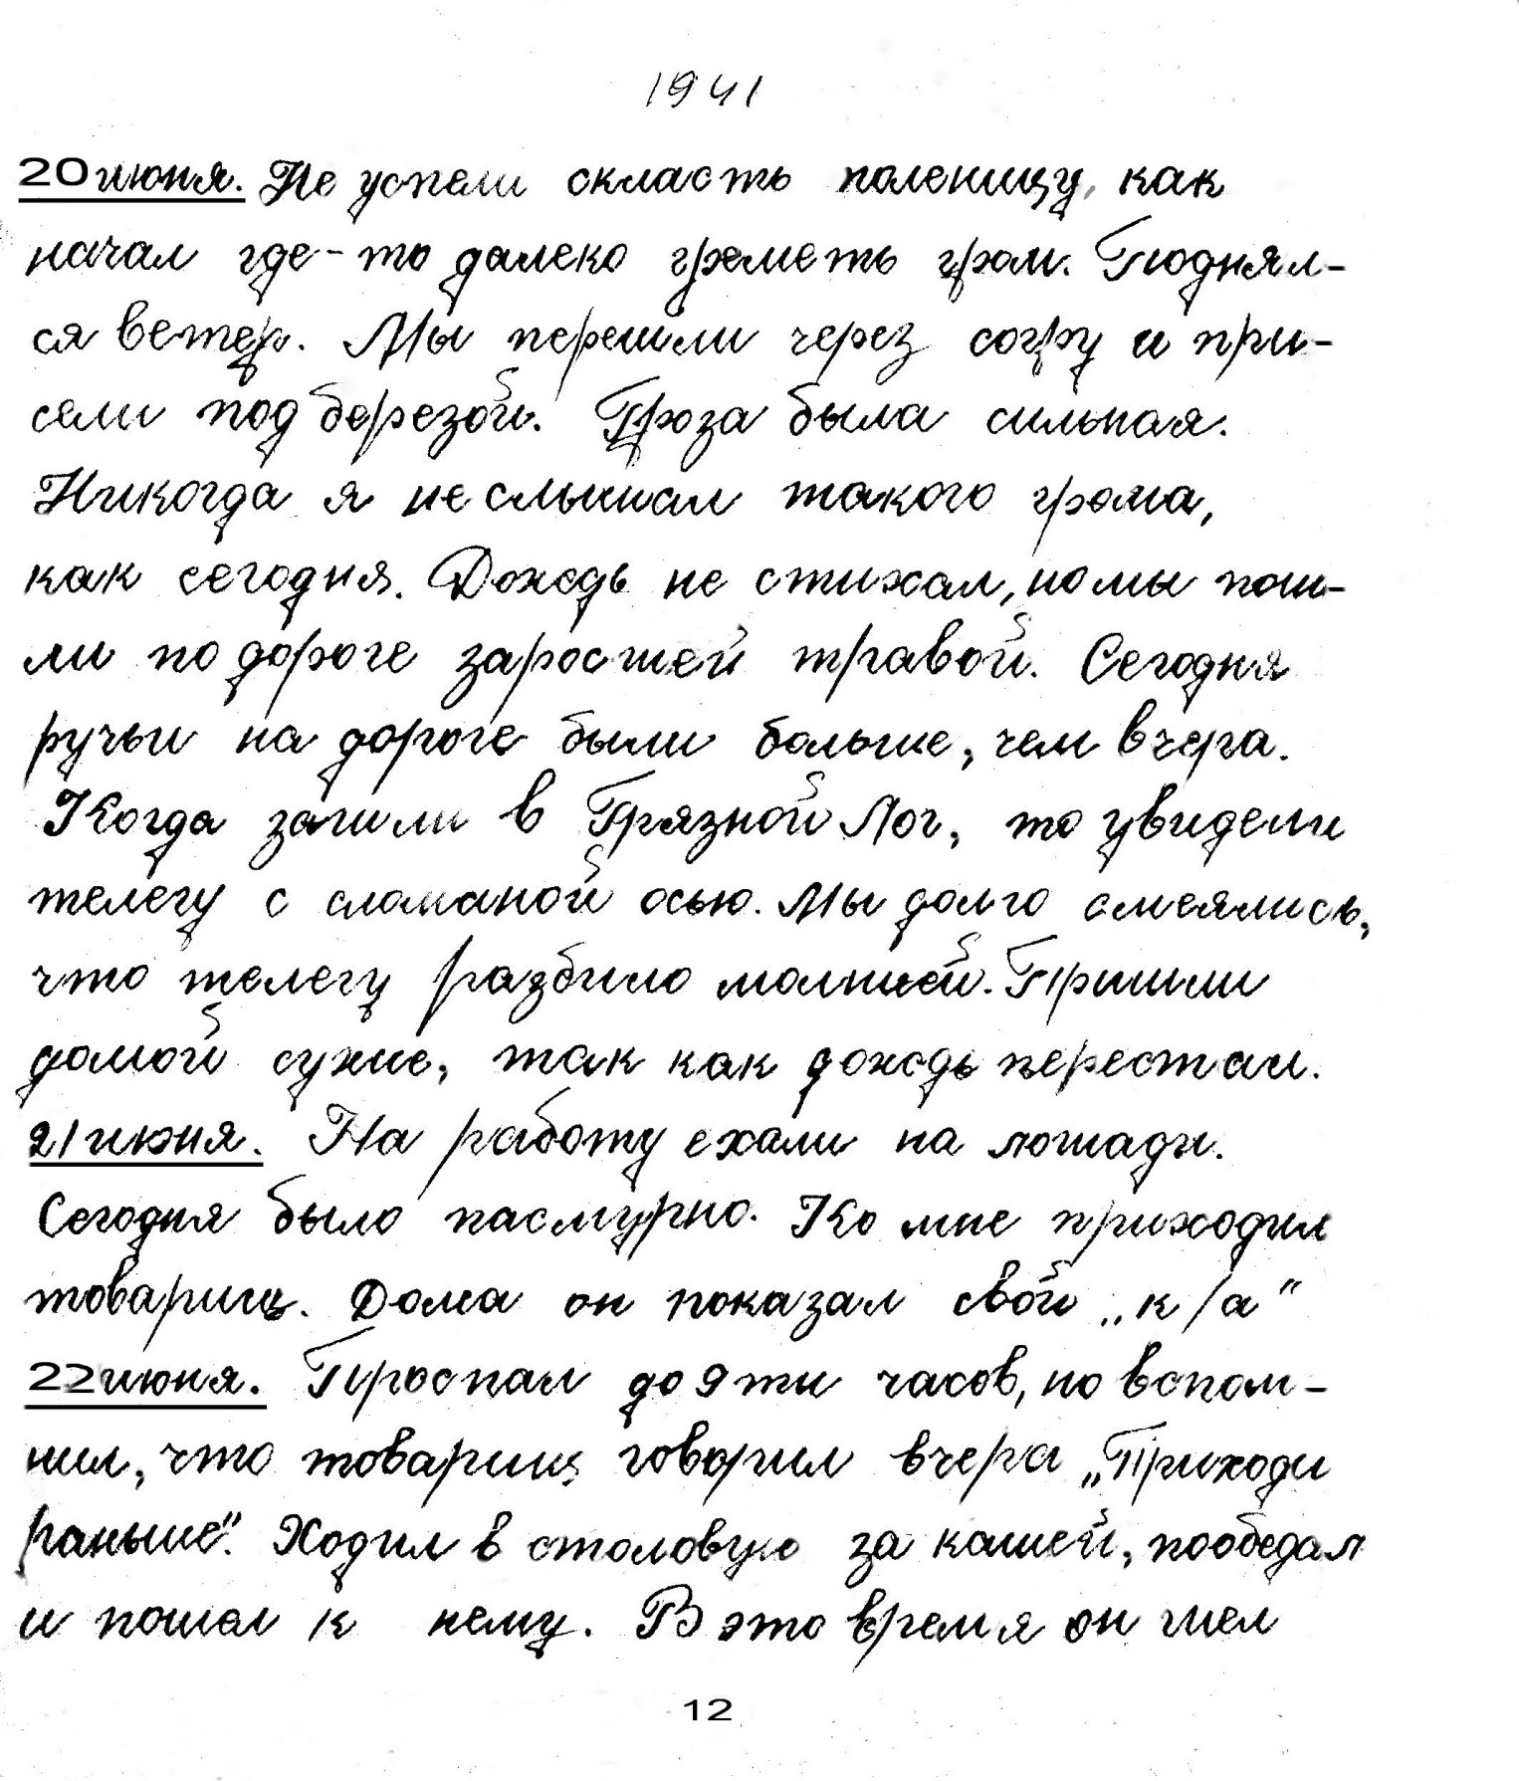 1941
20 июня. Не успели скласть поленицу, как
начал где-то далеко греметь гром. Поднял-
ся ветер. Мы перешли через согру и при-
сели под березой. Гроза была сильная.
Никогда я не слышал такого грома,
как сегодня. Дождь не стихал, но мы пош-
ли по дороге заросшей травой. Сегодня
ручьи на дороге были больше, чем вчера.
Когда зашли в Грязной Лог, то увидели
телегу с сломаной осью. Мы долго смеялись,
что телегу разбило молнией. Пришли
домой сухие, так как дождь перестал.
21 июня. На работу ехали на лошади.
Сегодня было пасмурно. Ко мне приходил
товарищ. Дома он показал свой „к/а"
22 июня. Проспал до 9ти часов, но вспом-
нил, что товарищ говорил вчера „Приходи
раньше". Ходил в столовую за кашей, пообедал
и пошел к нему. В это время он шел
12